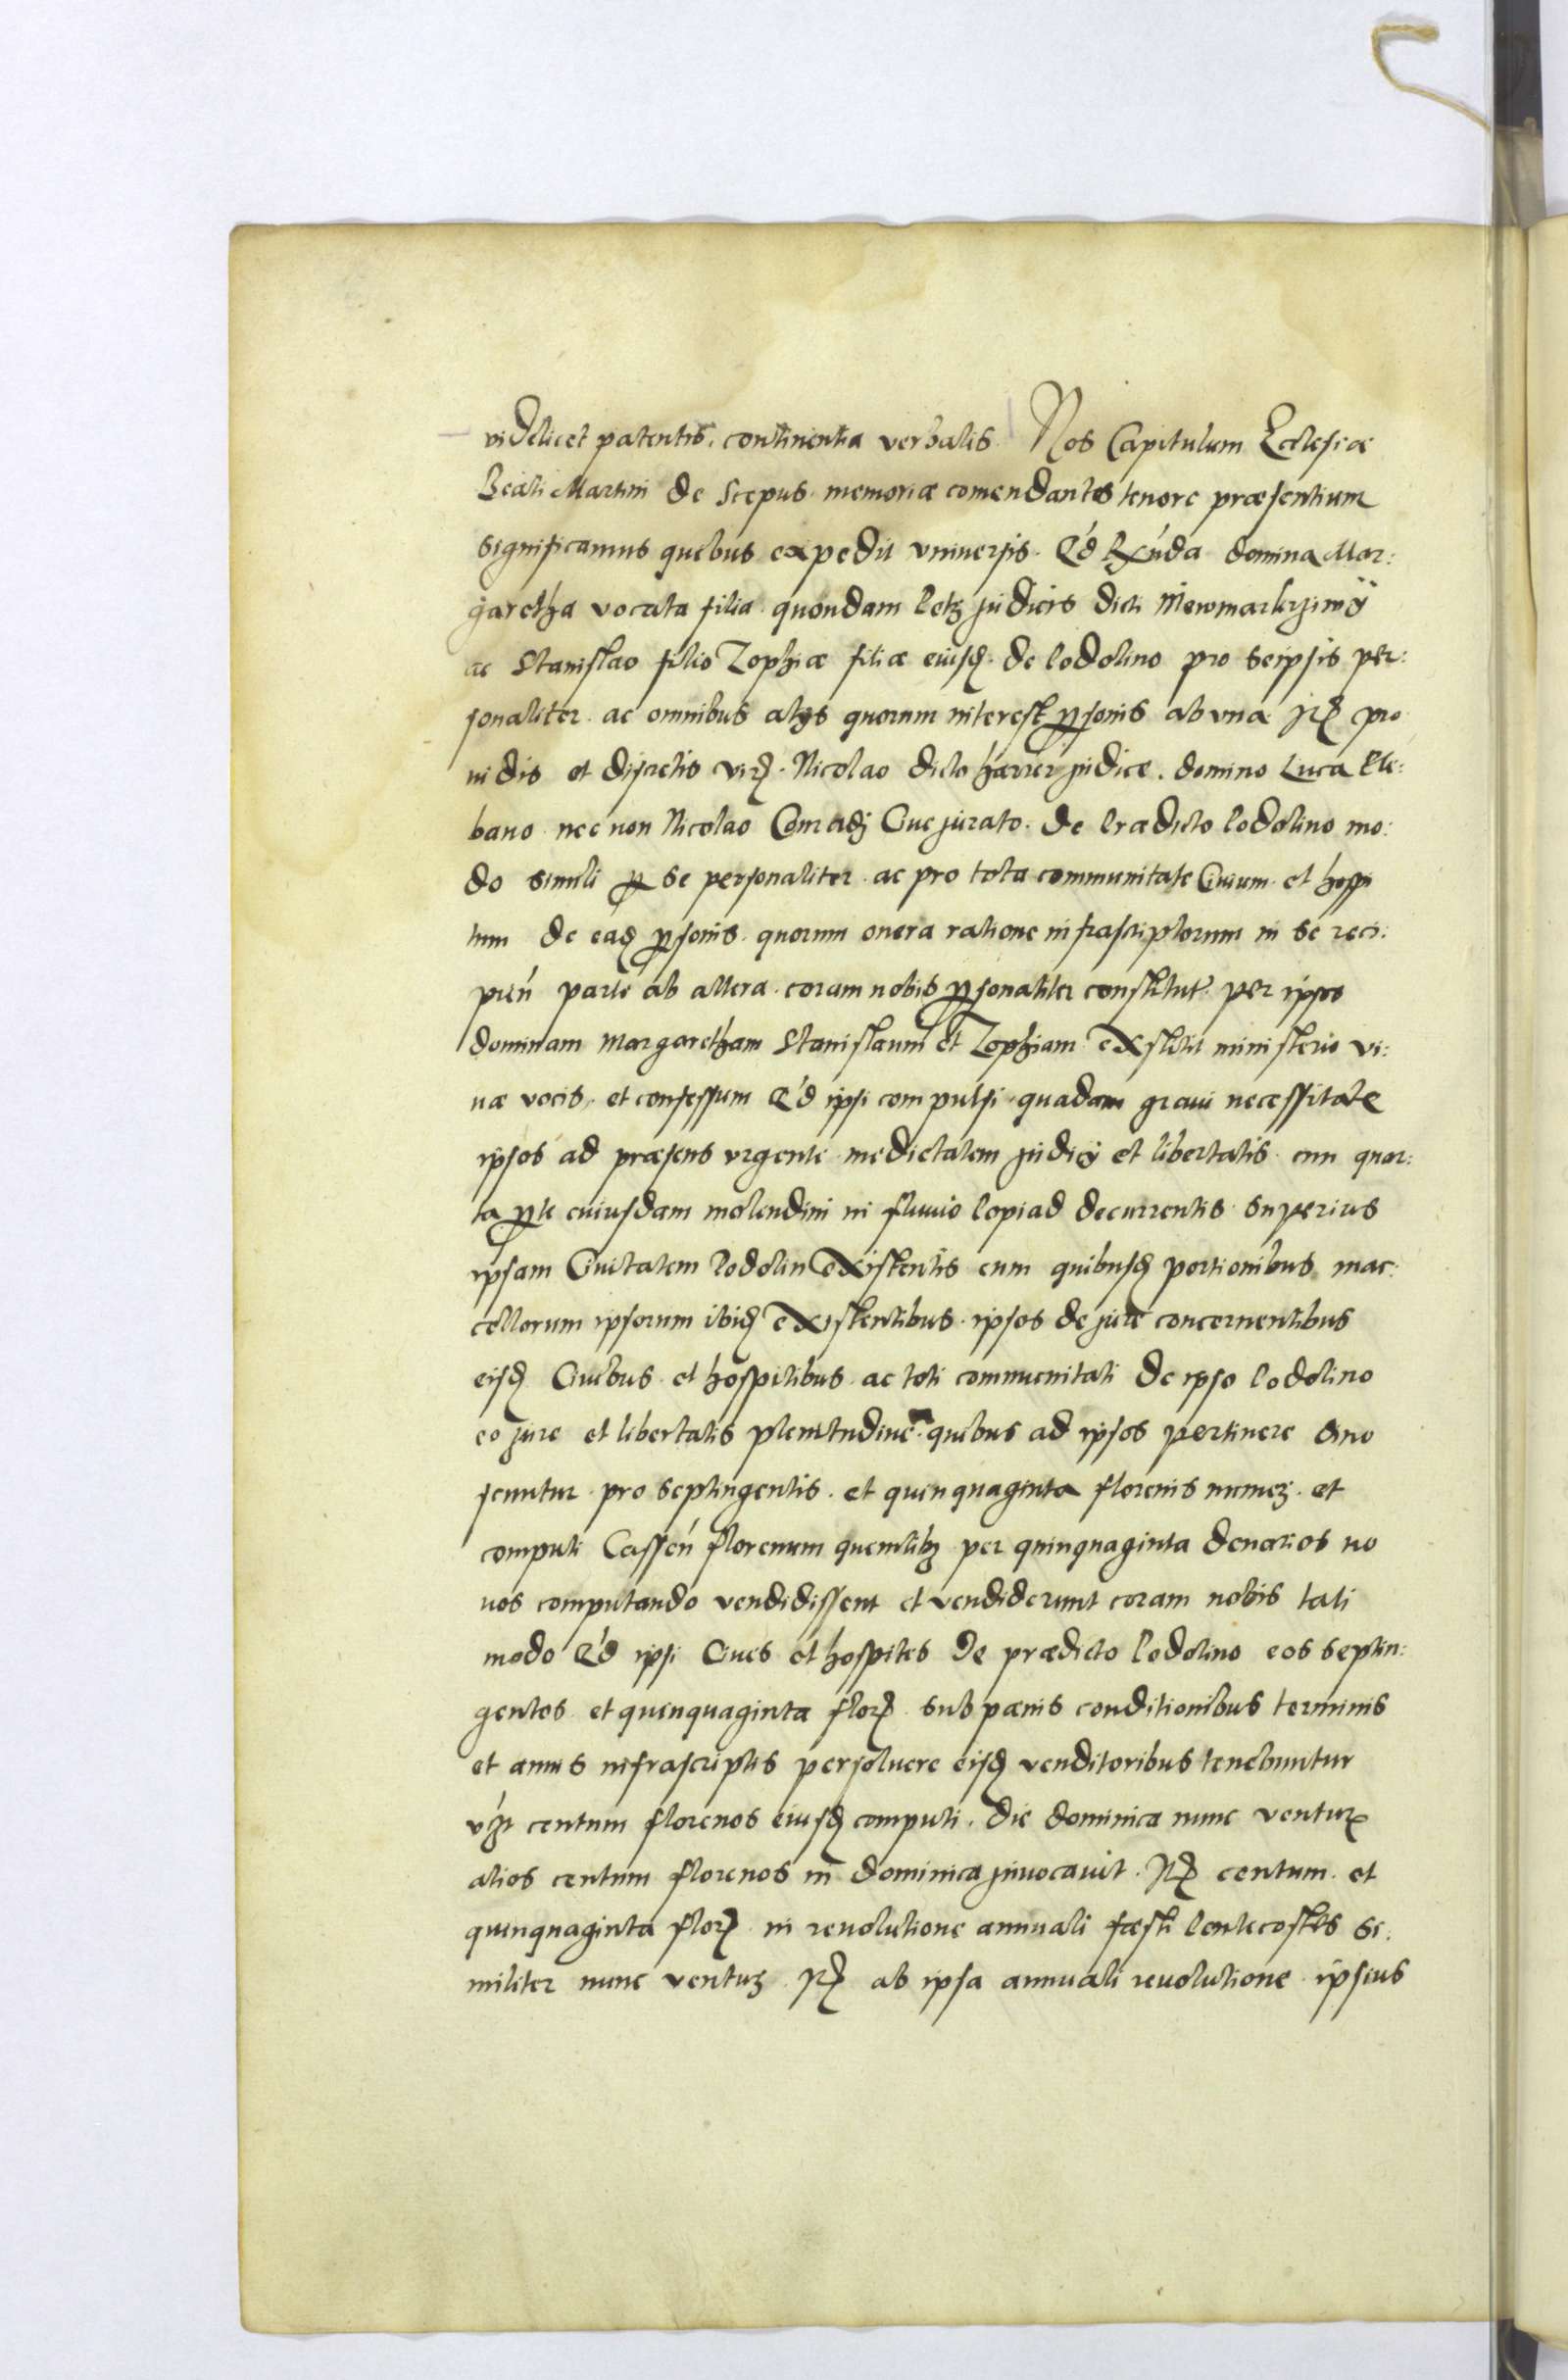 videlicet patentis, continentia verbalis. Nos Capitulum Ecclesiæ
Beati Martini de Scepus memoriæ comendantes tenore præsentium
significamus quibus expedit vniuersis. Q'd domina Mar:
garetha vocata filia quondam Petz judicis dicti
ac Stanislao filio Zophiæ filiæ eiusd. de Podolino pro seipsis per:
sonaliter ac omnibus alys quorum interest psonis ab vna It pro
uidis et discretis vir. Nicolao dicto harrer judice. domino Luca Ple:
bano nec non Nicolao Conradj Ciue jurato. de Prædicto Podolino mo:
do simili p se personaliter ac pro tota communitate Ciuium et hospi
tum de ead psonis quorum onera ratione infrascriptorum in se reci:
pień parte ab altera coram nobis psonaliter constitut. per ipsos
dominam Margaretham Stanislaum et Zophiam exstitit ministerio vi:
uæ vocis, et confessum Q'd ipsi compulsi quadam graui necessitate
ipsos ad præsens vrgente medietatem judicy et libertatis cum quar:
ta pte cuiusdam molendini in fluuio Popiad decurrentis superius
ipsam Ciuitatem Podolin existentis cum quibusd portionibus mac:
cellorum ipsorum ibid existentibus ipsos de jure concernentibus
eisd Ciuibus et hospitibus ac toti communitati de ipso Podolino
eo jure et libertatis plenitudine quibus ad ipsos pertinere dino
scuntur pro septingentis et quinquaginta florenis numez et
computi Casseń florenum quemlibz per quinquaginta denarios no
uos computando vendidissent et vendiderunt coram nobis tali
modo Q'd ipsi Ciues et hospites de prædicto Podolino eos septin:
gentos et quinquaginta flor. sub pænis conditionibus terminis
et annis infrascriptis persoluere eisd venditoribus tenebuntur
v'zt centum florenos eiusd computi. die dominica nunc ventur
alios centum florenos in dominica jnuocauit. It centum et
quinquaginta flor. in reuolutione annuali fæsti Pentecostes si:
militer nunc ventuz It ab ipsa annuali reuolutione ipsius